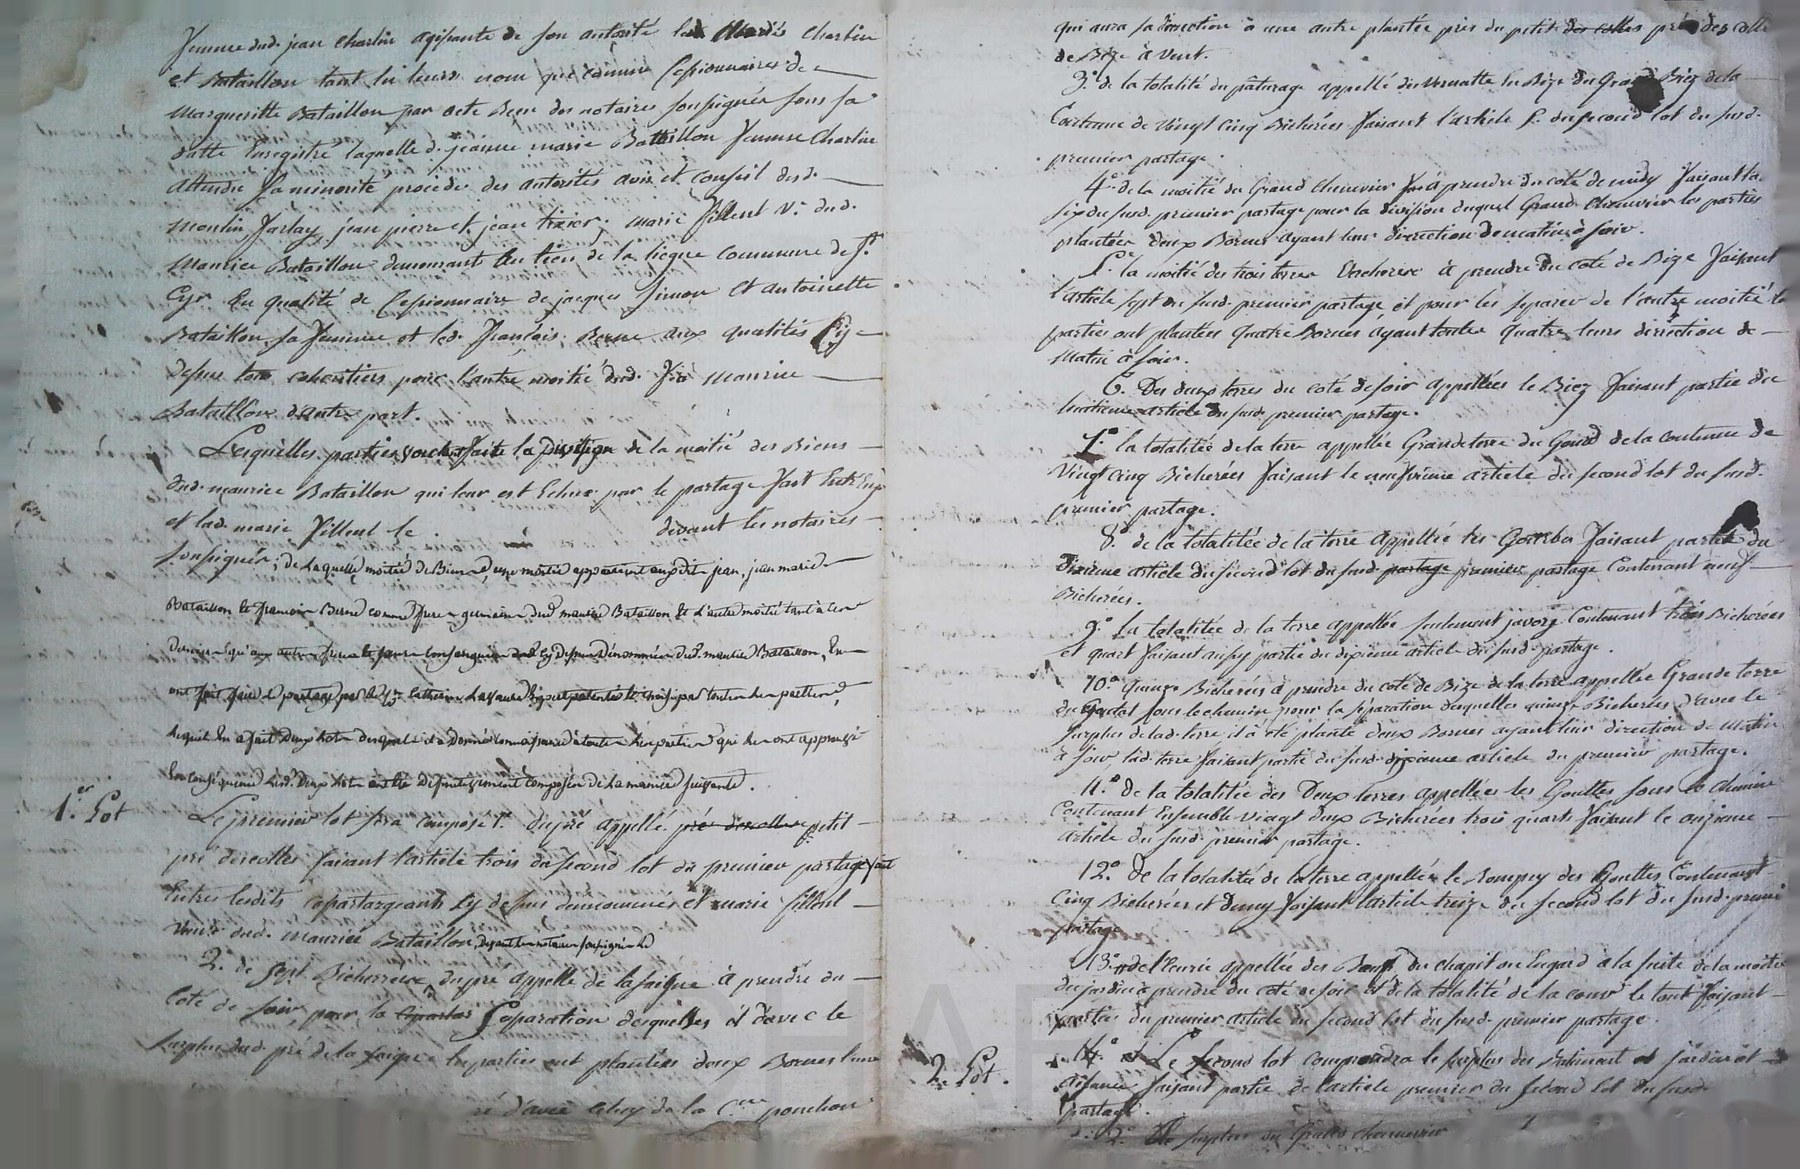 femme dud. jean Charlin agissante de son autorité lesd. mariés Charlin
et Bataillon tant en leurs nom que comme Cessionnaires de
Margueritte Bataillon par acte Reçu des notaires soussignés sous sa
datte Enregistré laquelle d. jeanne marie Bataillon femme Charlin
attendu sa minorité procède des autorités avis et conseil dud.
moulin Jarlay, jean pierre et jean tixier; marie filleul v.e dud.
Maurice Bataillon demeurant au lieu de la commune de St.
Cyr En qualité de Cessionnaire de jacques Simon et antoinette
Bataillon sa femme et led. François Berne aux qualités Cy-
dessus tous coheritiers pour l'autre moitié dud. feu Maurice
Bataillon d'autre part.
Lesquelles parties ont fait la division de la moitié des Biens
dud. maurice Bataillon qui leur est Echue par le partage fait Entr'Eux
et lad. marie filleul le devant les notaires
soussignés; de Laquelle moitié de Biens, une moitié appartient auxdits jean, jean marie
Bataillon Et françois Berne comme frere germains dud. maurice Bataillon Et l'autre moitié tant à Ces
derniers qu'aux autres freres Et soeurs consanguins cy dessus dénommés dud. maurice Bataillon, En
ont fait faire le partage par le Sr. par toutes les parties,
Lequel En a fait Deux Lots desquels il a Donné connaissance à toutes les parties qui les ont approuvé
En conséquence Lesd. Deux Lots ont Eté Definitivement Composés de La maniere suivante.
1.er Lot
Le premier lot sera composé 1.° du pré appellé pré des colles petit
pré des colles faisant l'article trois du second lot du premier partage fait
Entre lesdits copartageants Cy dessus denommés et marie filleul
veuve dud. Maurice Bataillon, devant les notaires soussignés
2.° de sept Bicherées du pré appellé de la faigue à prendre du
Coté de soir, pour la separation desquelles d'avec le
surplus dud. pré de la faigue les parties ont plantées deux Bornes l'une
d'avec celuy de la C.ne ponchon
qui aura sa direction à une autre plantée près du petit des colles pré des colles
de Bize à vent.
3.° de la totalité du pâturage appellé du Vernatte En Bize du Grand Biez de la
Contenue de Vingt Cinq Bicherées faisant l'article 5. du second lot du susd.
premier partage.
4.° de la moitié du Grand Chenevier à prendre du coté de midy faisant la
six du susd. premier partage pour la division duquel Grand Chenevier les parties
plantées deux Bornes ayant leur direction de matin à soir.
5.° la moitié des trois terres à prendre du coté de Bize faisant
l'article sept du susd. premier partage, et pour les separer de l'autre moitié les
parties ont plantées quatre Bornes ayant toutes quatre leurs direction de
Matin à soir.
6. Des deux terres du coté de soir appellées le Biez faisant partie du
huitieme article du susd. premier partage.
7.° la totalitée de la terre appellée Grande terre du Goutd de la contenue de
Vingt cinq Bicherées faisant le neufvieme article du second lot du susd.
premier partage.
8.° de la totalitée de la terre appellée les Gouttes faisant partie du
Dixieme article du second lot du susd. partage premier partage Contenant neuf
Bicherées.
9.° La totalitée de la terre appellée seulement javory Contenant trois Bicherées
et quart faisant aussy partie du dixieme article du susd. partage.
10.° quinze Bicherées à prendre du coté de Bize de la terre appellée Grande terre
du Goutat sous le chemin pour la separation desquelles quinze Bicherées d'avec le
surplus de lad. terre il a été planté deux Bornes ayant leur direction de Matin
à soir lad. terre faisant partie du susd. dixieme article du premier partage.
11.° de la totalitée des Deux terres appellées les Gouttes sous le Chemin
Contenant Ensemble vingt deux Bicherées trois quarts faisant le onzieme
article du susd. premier partage.
12.° De la totalitée de la terre appellée le Rompey des Gouttes Contenant
Cinq Bicherées et Demy faisant l'article treize du second lot du susd. premier
partage.
13.° de l'Ecurie appellée des Boeufs du chapit ou Engard à la suite de la moitié
du jardin à prendre du coté de soir et de la totalité de la cour le tout faisant
parties du premier article du second lot du susd. premier partage.
2.e Lot.
14.° Le second lot comprendra le surplus des Batiment et jardin et
aisance faisant partie de l'article premier du second lot du susd.
partage.
2.° Le surplus du Grand chenevier